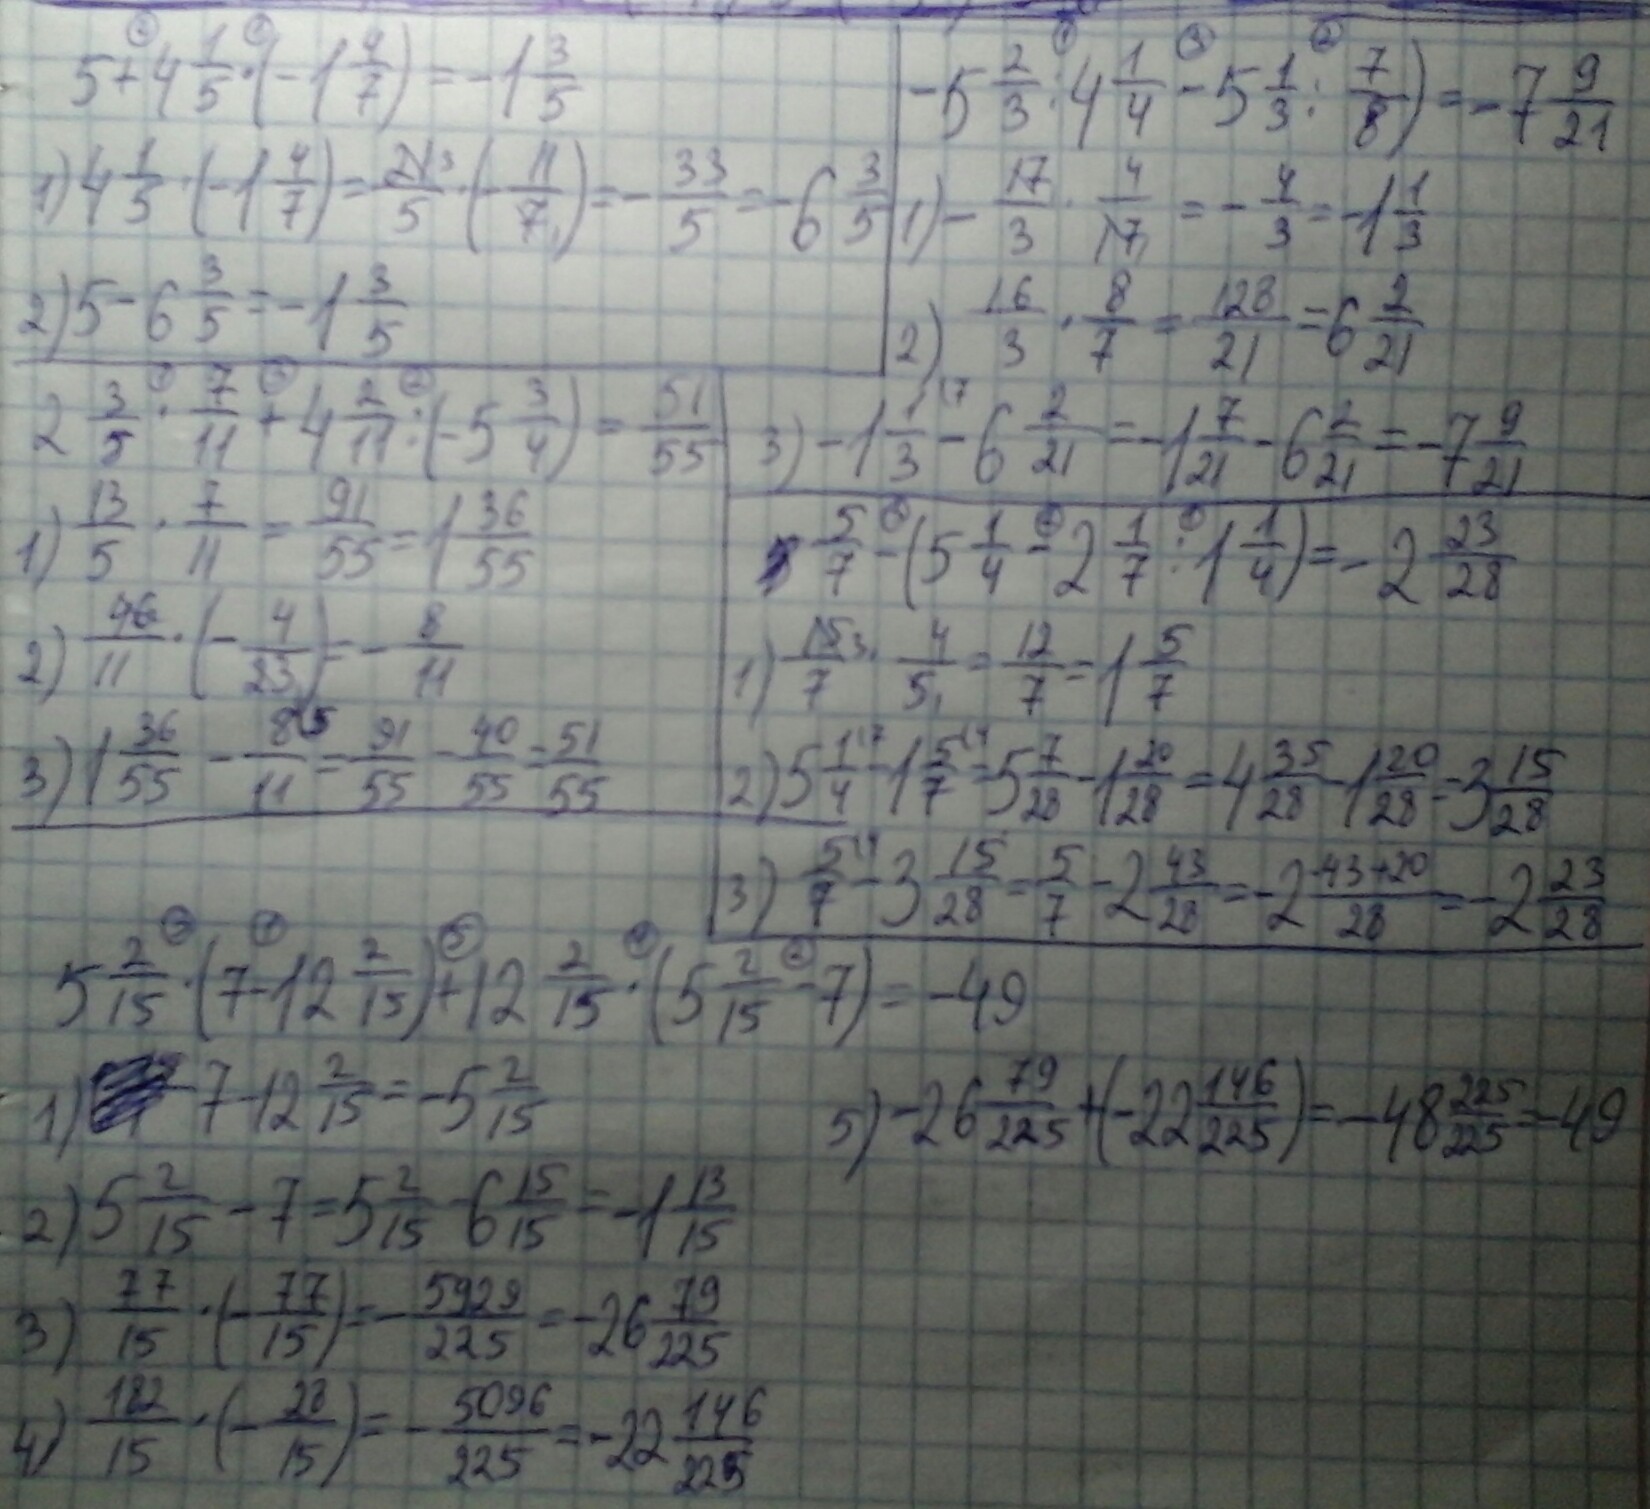 5 + 4 1/5 · (-1 4/7) = -1 3/5
1) 4 1/5 · (-1 4/7) = 21/5 · (-11/7) = -33/5 = -6 3/5
2) 5 - 6 3/5 = -1 3/5
-5 2/3 : 4 1/4 - 5 1/3 : 7/8) = -7 9/21
1) -17/3 · 4/17 = -4/3 = -1 1/3
2) 16/3 · 8/7 = 128/21 = 6 2/21
3) -1 1/3 - 6 2/21 = -1 7/21 - 6 2/21 = -7 9/21
2 3/5 · 7/11 + 4 2/11 : (-5 3/4) = 51/55
1) 13/5 · 7/11 = 91/55 = 1 36/55
2) 46/11 · (-4/23) = -8/11
3) 1 36/55 - 8/11 = 91/55 - 40/55 = 51/55
5/7 - (5 1/4 - 2 1/7 : 1 1/4) = -2 23/28
1) 15/7 · 4/5 = 12/7 = 1 5/7
2) 5 1/4 - 1 5/7 = 5 7/28 - 1 20/28 = 4 35/28 - 1 20/28 = 3 15/28
3) 5/7 - 3 15/28 = 5/7 - 2 43/28 = -2 43+20/28 = -2 23/28
5 2/15 · (7 - 12 2/15) + 12 2/15 · (5 2/15 - 7) = -49
1) 7 - 12 2/15 = -5 2/15
2) 5 2/15 - 7 = 5 2/15 - 6 15/15 = -1 13/15
3) 77/15 · (-77/15) = -5929/225 = -26 79/225
4) 182/15 · (-28/15) = -5096/225 = -22 146/225
5) -26 79/225 + (-22 146/225) = -48 225/225 = -49